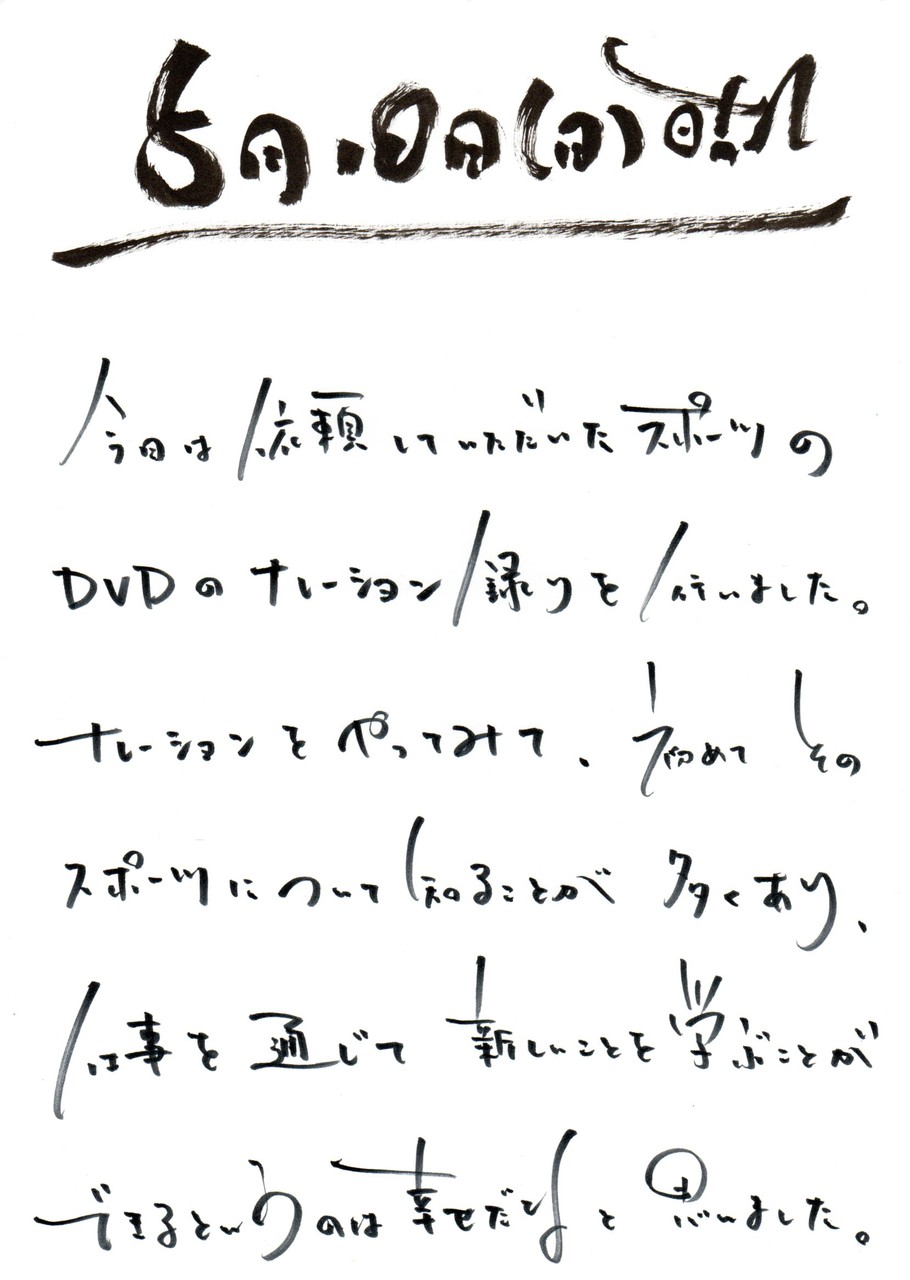 5月10日(月)晴れ
今日は依頼していただいたスポーツの
DVDのナレーション録りを行いました。
ナレーションをやってみて、初めてその
スポーツについて知ることが多くあり、
仕事を通じて新しいことを学ぶことが
できるというのは幸せだなと思いました。